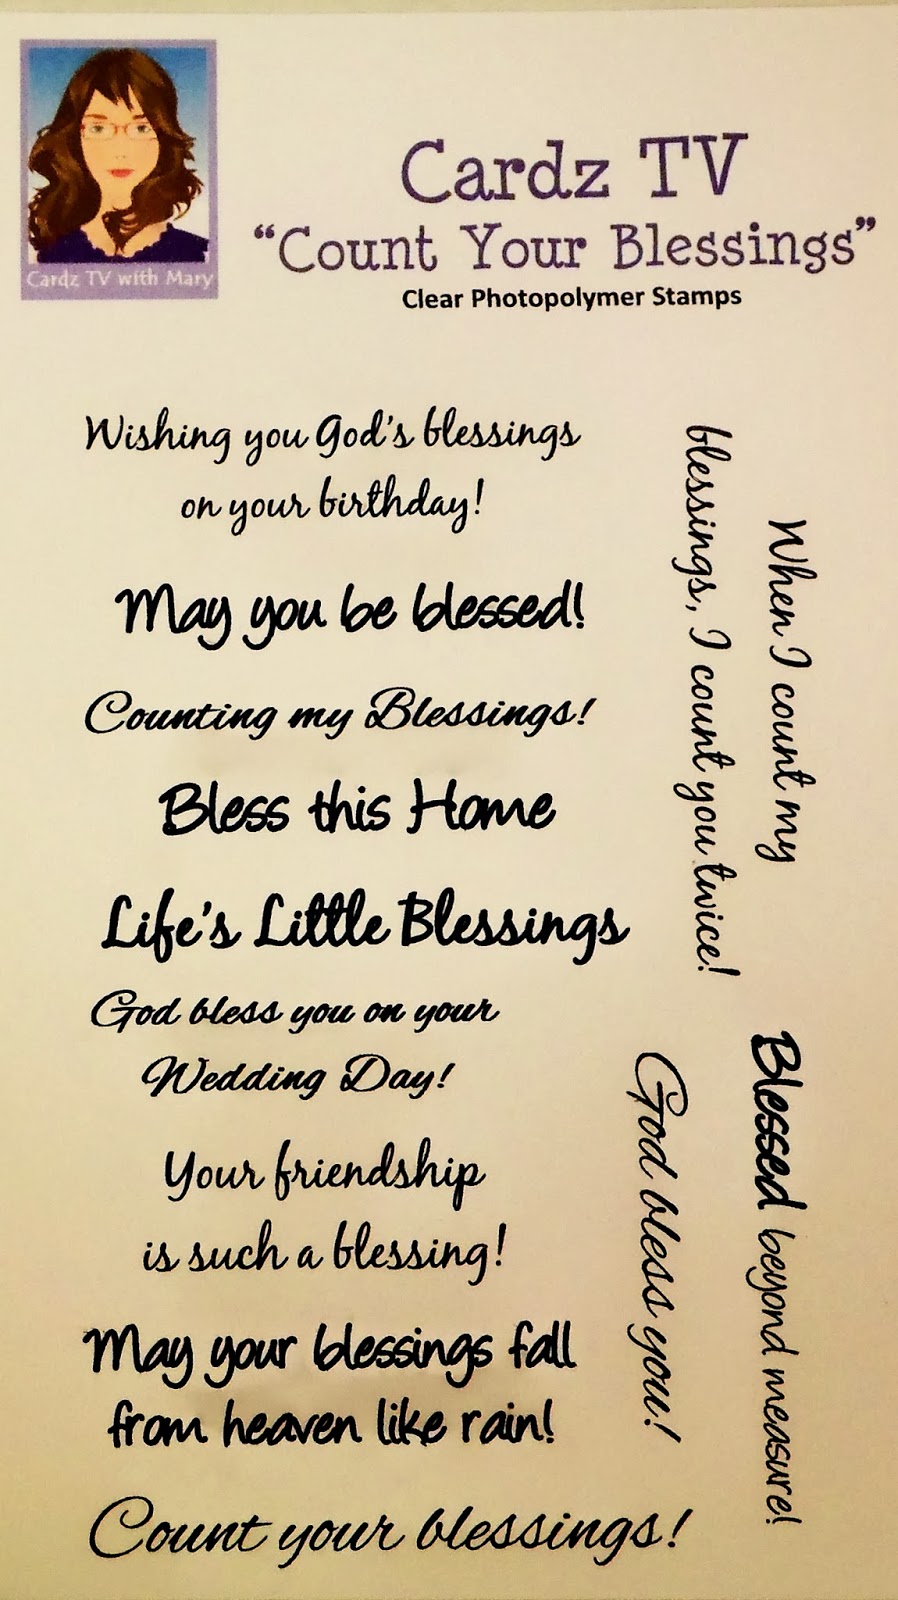 Cardz TV with Mary
Cardz TV
“Count Your Blessings”
Clear Photopolymer Stamps
Wishing you God's blessings
on your birthday!
May you be blessed!
Counting my Blessings!
Bless this Home
Life's Little Blessings
God bless you on your
Wedding Day!
Your friendship
is such a blessing!
May your blessings fall
from heaven like rain!
Count your blessings!
When I count my
blessings, I count you twice!
God bless you!
Blessed beyond measure!